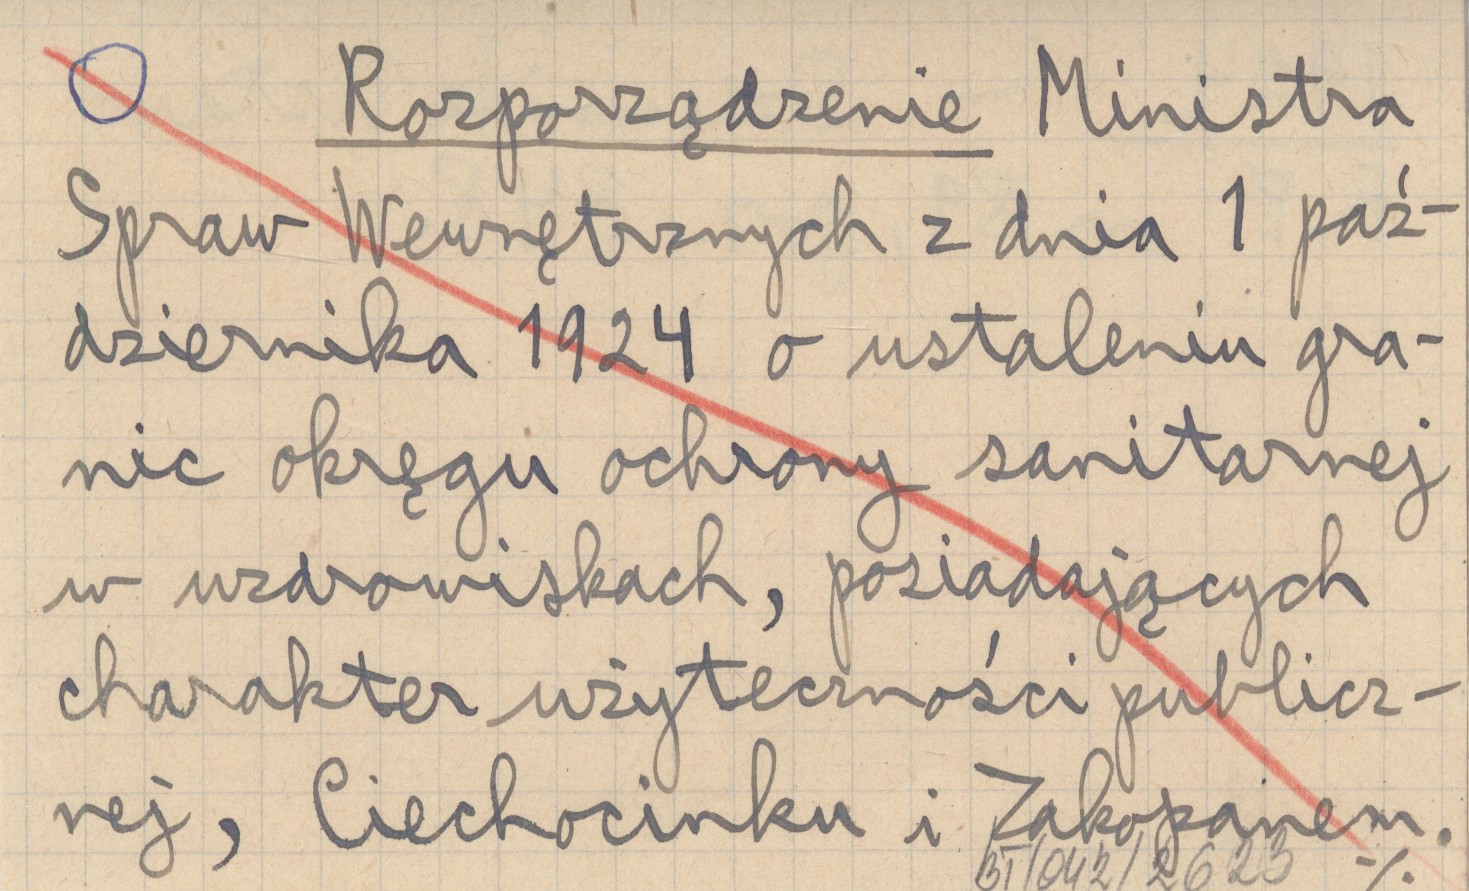 Rozporządzenie Ministra
Spraw Wewnętrznych z dnia 1 paź-
dziernika 1924 o ustaleniu gra-
nic okręgu ochrony sanitarnej
w uzdrowiskach, posiadających
charakter użyteczności publicz-
nej, Ciechocinku i Zakopanem.
BT/042/2623 -/.